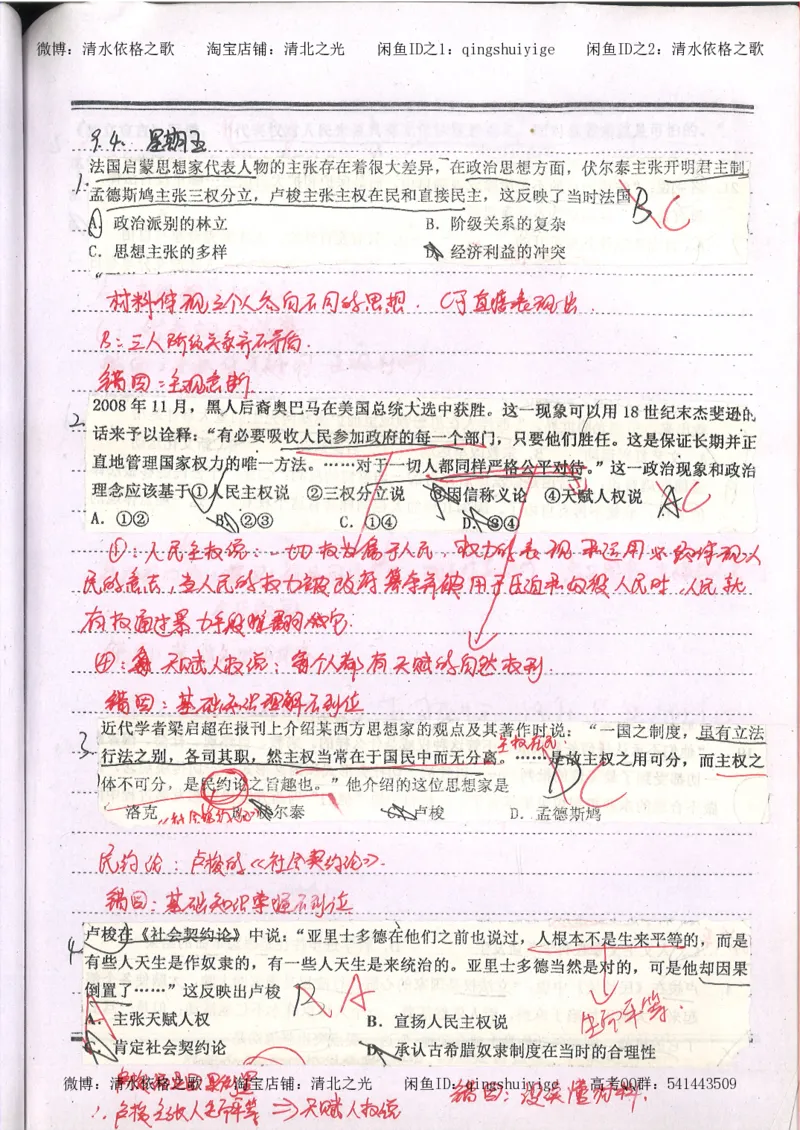 微博：清水依格之歌 淘宝店铺：清北之光 闲鱼ID之1：qingshuiyige 闲鱼ID之2：清水依格之歌
9.4. 星期五
1. 法国启蒙思想家代表人物的主张存在着很大差异，在政治思想方面，伏尔泰主张开明君主制，
孟德斯鸠主张三权分立，卢梭主张主权在民和直接民主，这反映了当时法国 B C
A. 政治派别的林立 B. 阶级关系的复杂
C. 思想主张的多样 D. 经济利益的冲突
材料体现三个人各自不同的思想. C可直接表现出.
B：三人阶级关系并不矛盾.
错因：主观臆断
2. 2008年11月，黑人后裔奥巴马在美国总统大选中获胜。这一现象可以用18世纪末杰斐逊的
话来予以诠释：“有必要吸收人民参加政府的每一个部门，只要他们胜任。这是保证长期并正
直地管理国家权力的唯一方法。……对于一切人都同样严格公平对待。”这一政治现象和政治
理念应该基于①人民主权说 ②三权分立说 ③因信称义论 ④天赋人权说 A C
A. ①② B. ②③ C. ①④ D. ③④
①：人民主权说：一切权力属于人民，权力的表现和运用必须体现人
民的意志，当人民的权力被政府篡夺并被用于压迫和奴役人民时，人民就
有权通过暴力手段推翻它.
④：天赋人权说：每个人都有天赋的自然权利.
错因：基础知识理解不到位
3. 近代学者梁启超在报刊上介绍某西方思想家的观点及其著作时说：“一国之制度，虽有立法
行法之别，各司其职，然主权当常在于国民中而无分离。……是故主权之用可分，而主权之
主权在民.
体不可分，是民约论之旨趣也。”他介绍的这位思想家是 D C
洛克 “社会契约论” 伏尔泰 C. 卢梭 D. 孟德斯鸠
民约论：卢梭的《社会契约论》.
错因：基础知识掌握不到位
4. 卢梭在《社会契约论》中说：“亚里士多德在他们之前也说过，人根本不是生来平等的，而是
有些人天生是作奴隶的，有一些人天生是来统治的。亚里士多德当然是对的，可是他却因果
倒置了……”这反映出卢梭 B A
生而平等.
A. 主张天赋人权 B. 宣扬人民主权说
C. 肯定社会契约论 D. 承认古希腊奴隶制度在当时的合理性
微博：清水依格之歌 淘宝店铺：清北之光 闲鱼ID：qingshuiyige 高考QQ群：541443509
错因：没读懂材料.
∴卢梭主张人生而平等 ⇒ 天赋人权说